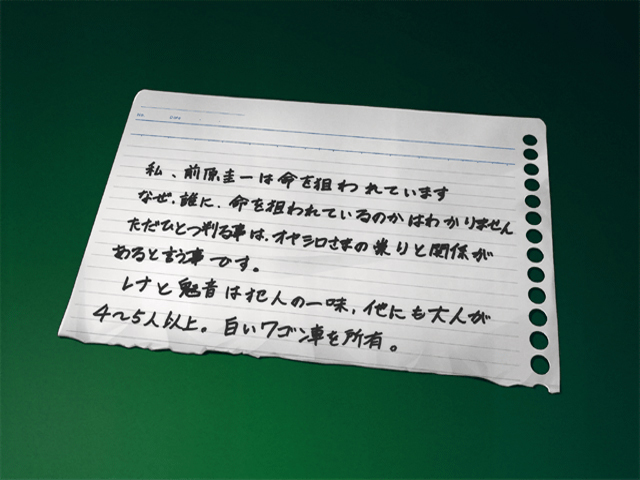 私、前原圭一は命を狙われています
なぜ、誰に、命を狙われているのかはわかりません
ただひとつ判る事は、オヤシロさまの祟りと関係が
あると言う事です。
レナと魅音は犯人の一味、他にも大人が
4〜5人以上。白いワゴン車を所有。